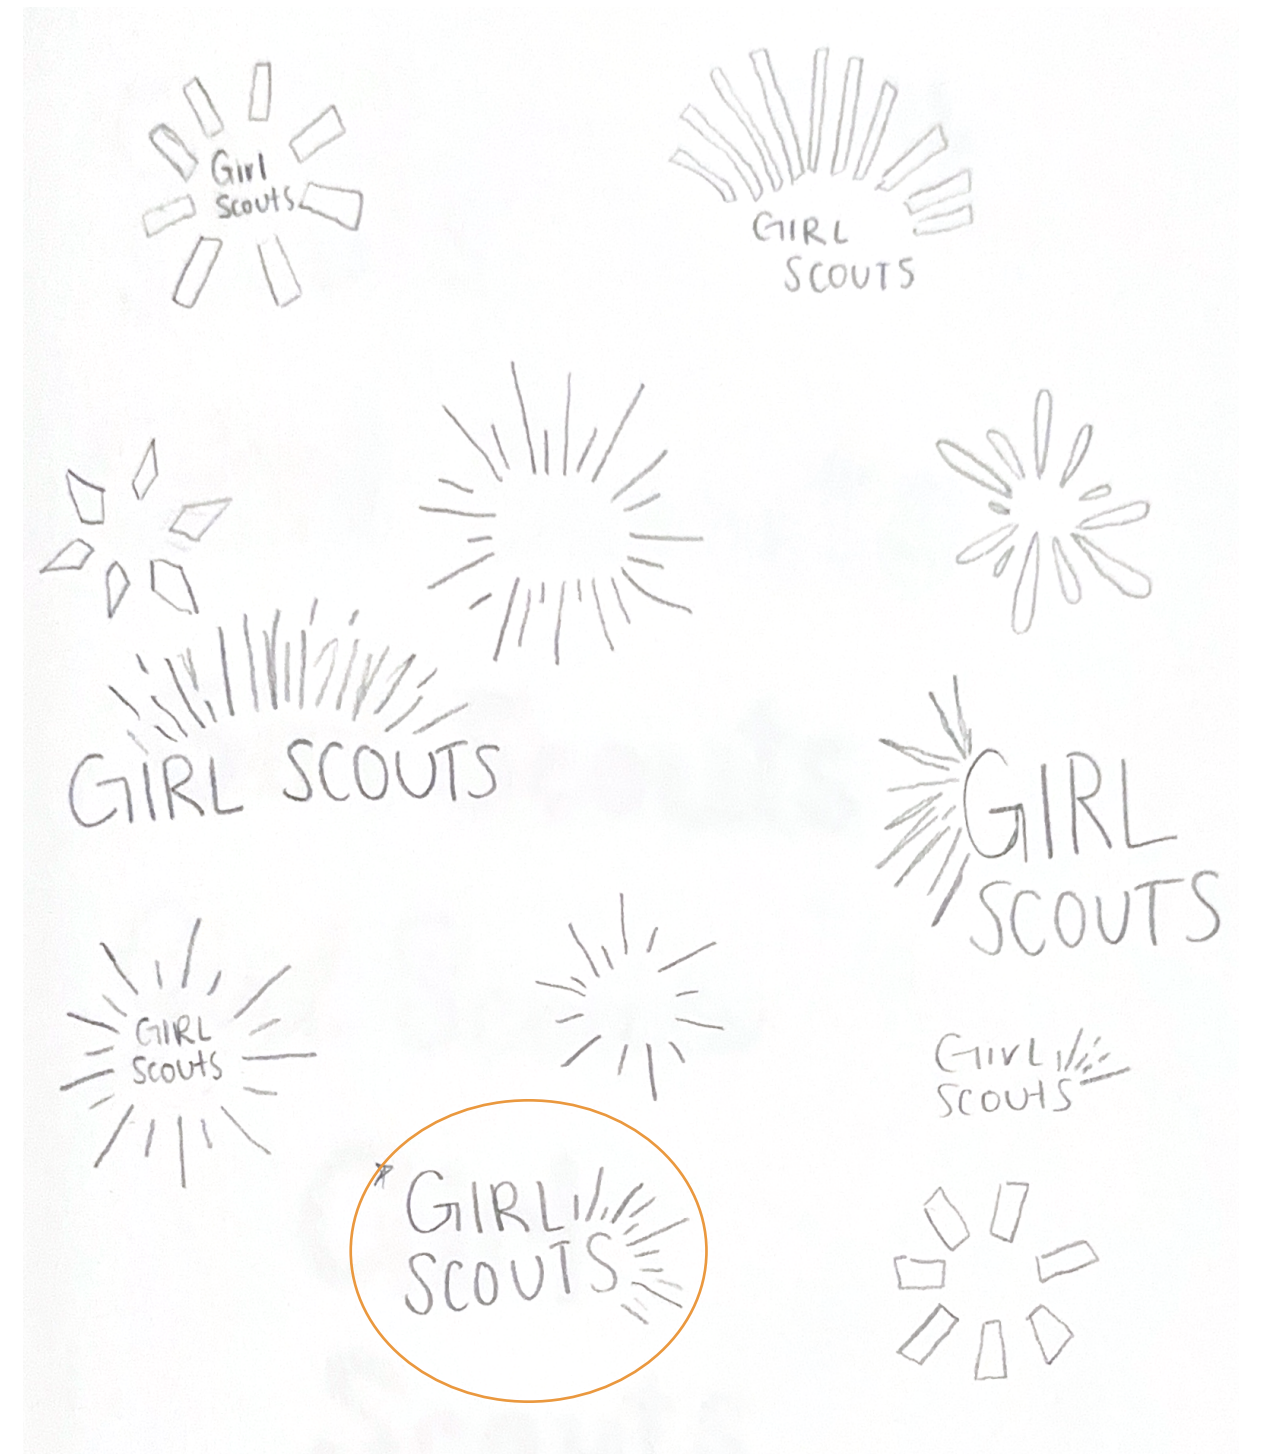 Girl
Scouts
GIRL
SCOUTS
GIRL SCOUTS
GIRL
SCOUTS
GIRL
Scouts
GIRL
SCOUTS
GIRL
SCOUTS